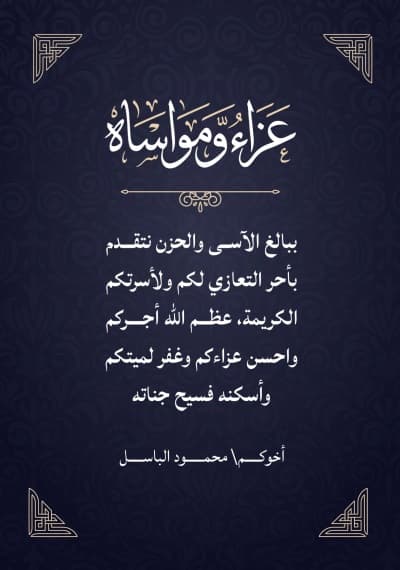 عَزَاءُ وَّمَوَاسَاه
ببالغ الآسى والحزن نتقدم
بأحر التعازي لكم ولأسرتكم
الكريمة، عظم الله أجركم
واحسن عزاءكم وغفر لميتكم
وأسكنه فسيح جناته
أخوكم\ محمود الباسل